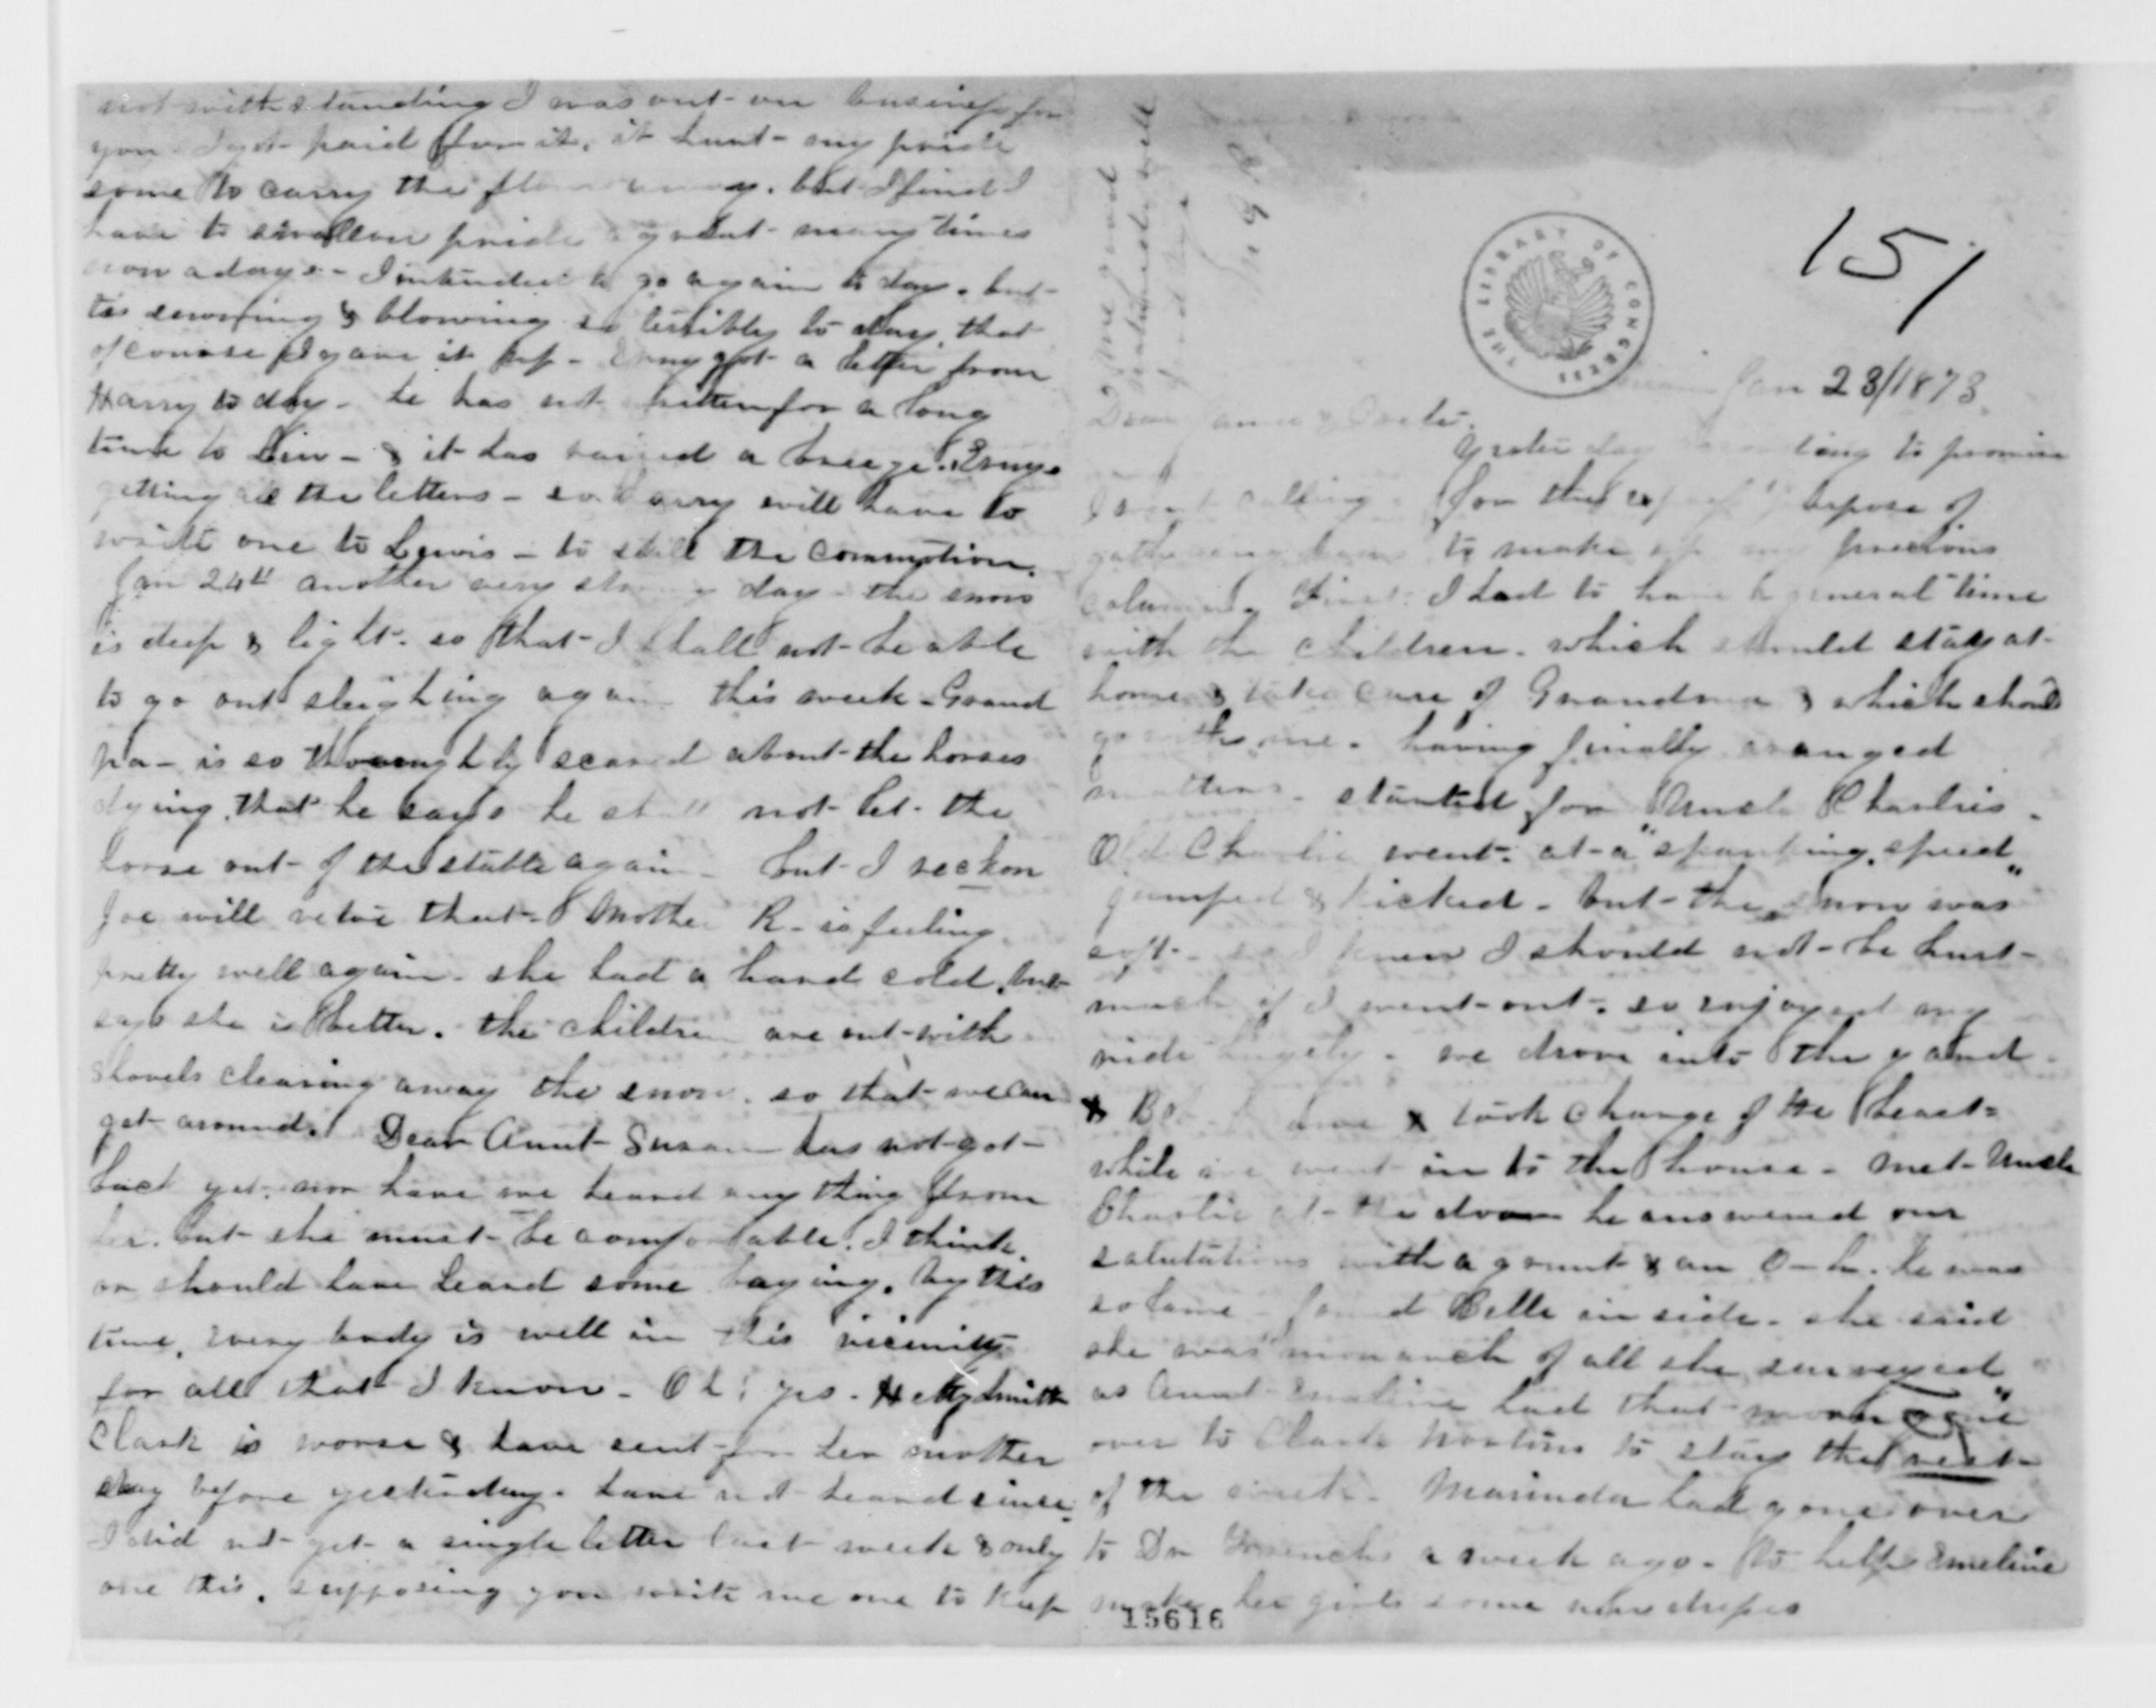 151
THE LIBRARY OF CONGRESS
Jan 23/1873
Dear &
Yesterday to promise
I went calling for the of
to make up my precious
First I had to have a general time
with the children. which should stay at
home & take care of Grandma & which should
go with me. having finally aranged
matters. started for Uncle Charlies.
Old Charlie went. at a "spanking speed"
jumped & kicked. but the snow was
soft. so I knew I should not be hurt
much if I went out. so enjoyed my
ride hugely. we drove into the yard.
& Bob & took charge of the beast
while we went in to the house. met Uncle
Charlie at the door he answered our
salutations with a grunt & an O-h. he was
so lame found Belle inside. she said
she was "monarch of all she surveyed"
as Aunt Emeline had that morn gone
over to Clark to stay the rest
of the week. Marinda had gone over
to Dr a week ago. to help Emeline
make her girls some new dresses
15616
notwithstanding I was out on business for
you & get paid for it. it hurt my pride
some to carry the but I find I
have to swallow pride a great many times
now adays. I intended to go again to day. but
tis snowing & blowing so terribly to day. that
of course I gave it up. got a letter from
Harry to day. he has not written for a long
time to & it has raised a breeze.
getting all the letters. so Harry will have to
write one to Lewis. to still the commotion.
Jan 24th another very stormy day. the snow
is deep & light. so that I shall not be able
to go out sleighing again this week. Grand
pa is so thoroughly scared about the horses
dying. that he says he shall not let the
horse out of the stable again but I reckon
Joe will vetoe that. Mother R. is feeling
pretty well again. she had a hard cold. but
says she is better. the children are out with
shovels clearing away the snow. so that we can
get around. Dear Aunt Susan has not got
back yet. nor have we heard any thing from
her. but she must be comfortable. I think.
or should have heard some by this
time. every body is well in this vicinity
for all that I know. Oh! yes. Hetty Smith
Clark is worse & have sent for her mother
day before yesterday. have not heard since.
I did not get a single letter last week & only
one this. supposing you write me one to keep